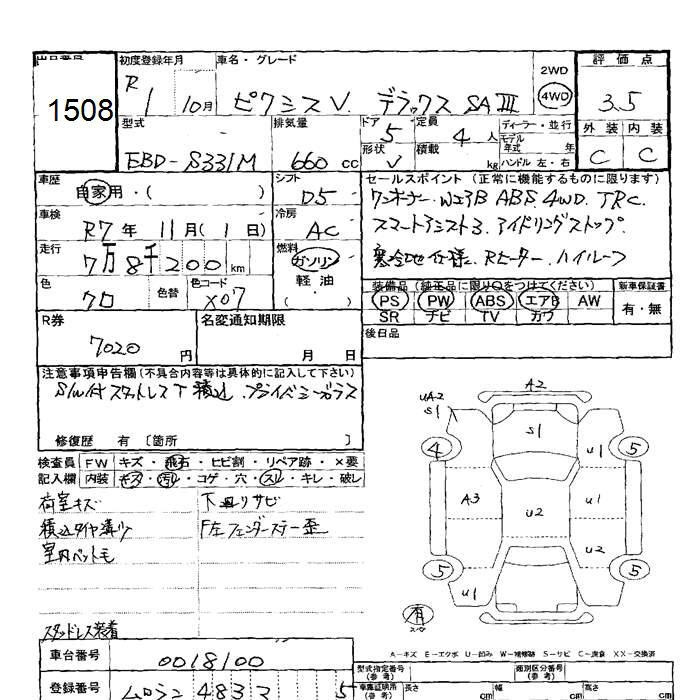 出品番号
1508
初度登録年月
R1 10月
車名・グレード
ピクシスV. デラックス SAⅢ
2WD
4WD
評価点
3.5
外装 内装
C C
型式
EBD-S331M
排気量
660 cc
ドア 5
形状 V
定員 4 人
積載 kg
ディーラー・並行
モデル年式 年
ハンドル 左・右
車歴
自家用・( )
シフト
D5
車検
R7年 11月(1日)
冷房
AC
走行
7万8千200km
燃料
ガソリン
軽油
( )
色
クロ
色替
色コード
X07
セールスポイント (正常に機能するものに限ります)
ワンオーナー. WエアB ABS 4WD. TRC.
スマートアシスト3. アイドリングストップ.
寒冷地仕様. Rヒーター. ハイルーフ
装備品 (純正品に限り○をつけてください)
PS PW ABS エアB AW
SR ナビ TV カワ
新車保証書
有・無
R券
7020円
名変通知期限
月 日
後日品
注意事項申告欄(不具合内容等は具体的に記入して下さい)
S/W付スタッドレスT積込. プライバシーガラス
修復歴 有 〔箇所 〕
検査員 FW キズ・飛石・ヒビ割・リペア跡・×要
記入欄 内装 キズ・汚レ・コゲ・穴・スレ・キレ・破レ
荷室キズ
下回リサビ
積込タイヤ溝少
F左フェンダーステー歪
室内ペット毛
スタッドレス装着
A2
UA2
S1
S1
4
U1
5
A3
U2
U1
U2
5
5
U1
有
A-キズ E-エクボ U-凹み W-補修跡 S-サビ C-腐食 XX-交換済
車台番号
0018100
型式指定番号
(参考)
類別区分番号
(参考)
登録番号
4832
5
(参考)
長さ cm
幅 cm
高さ cm